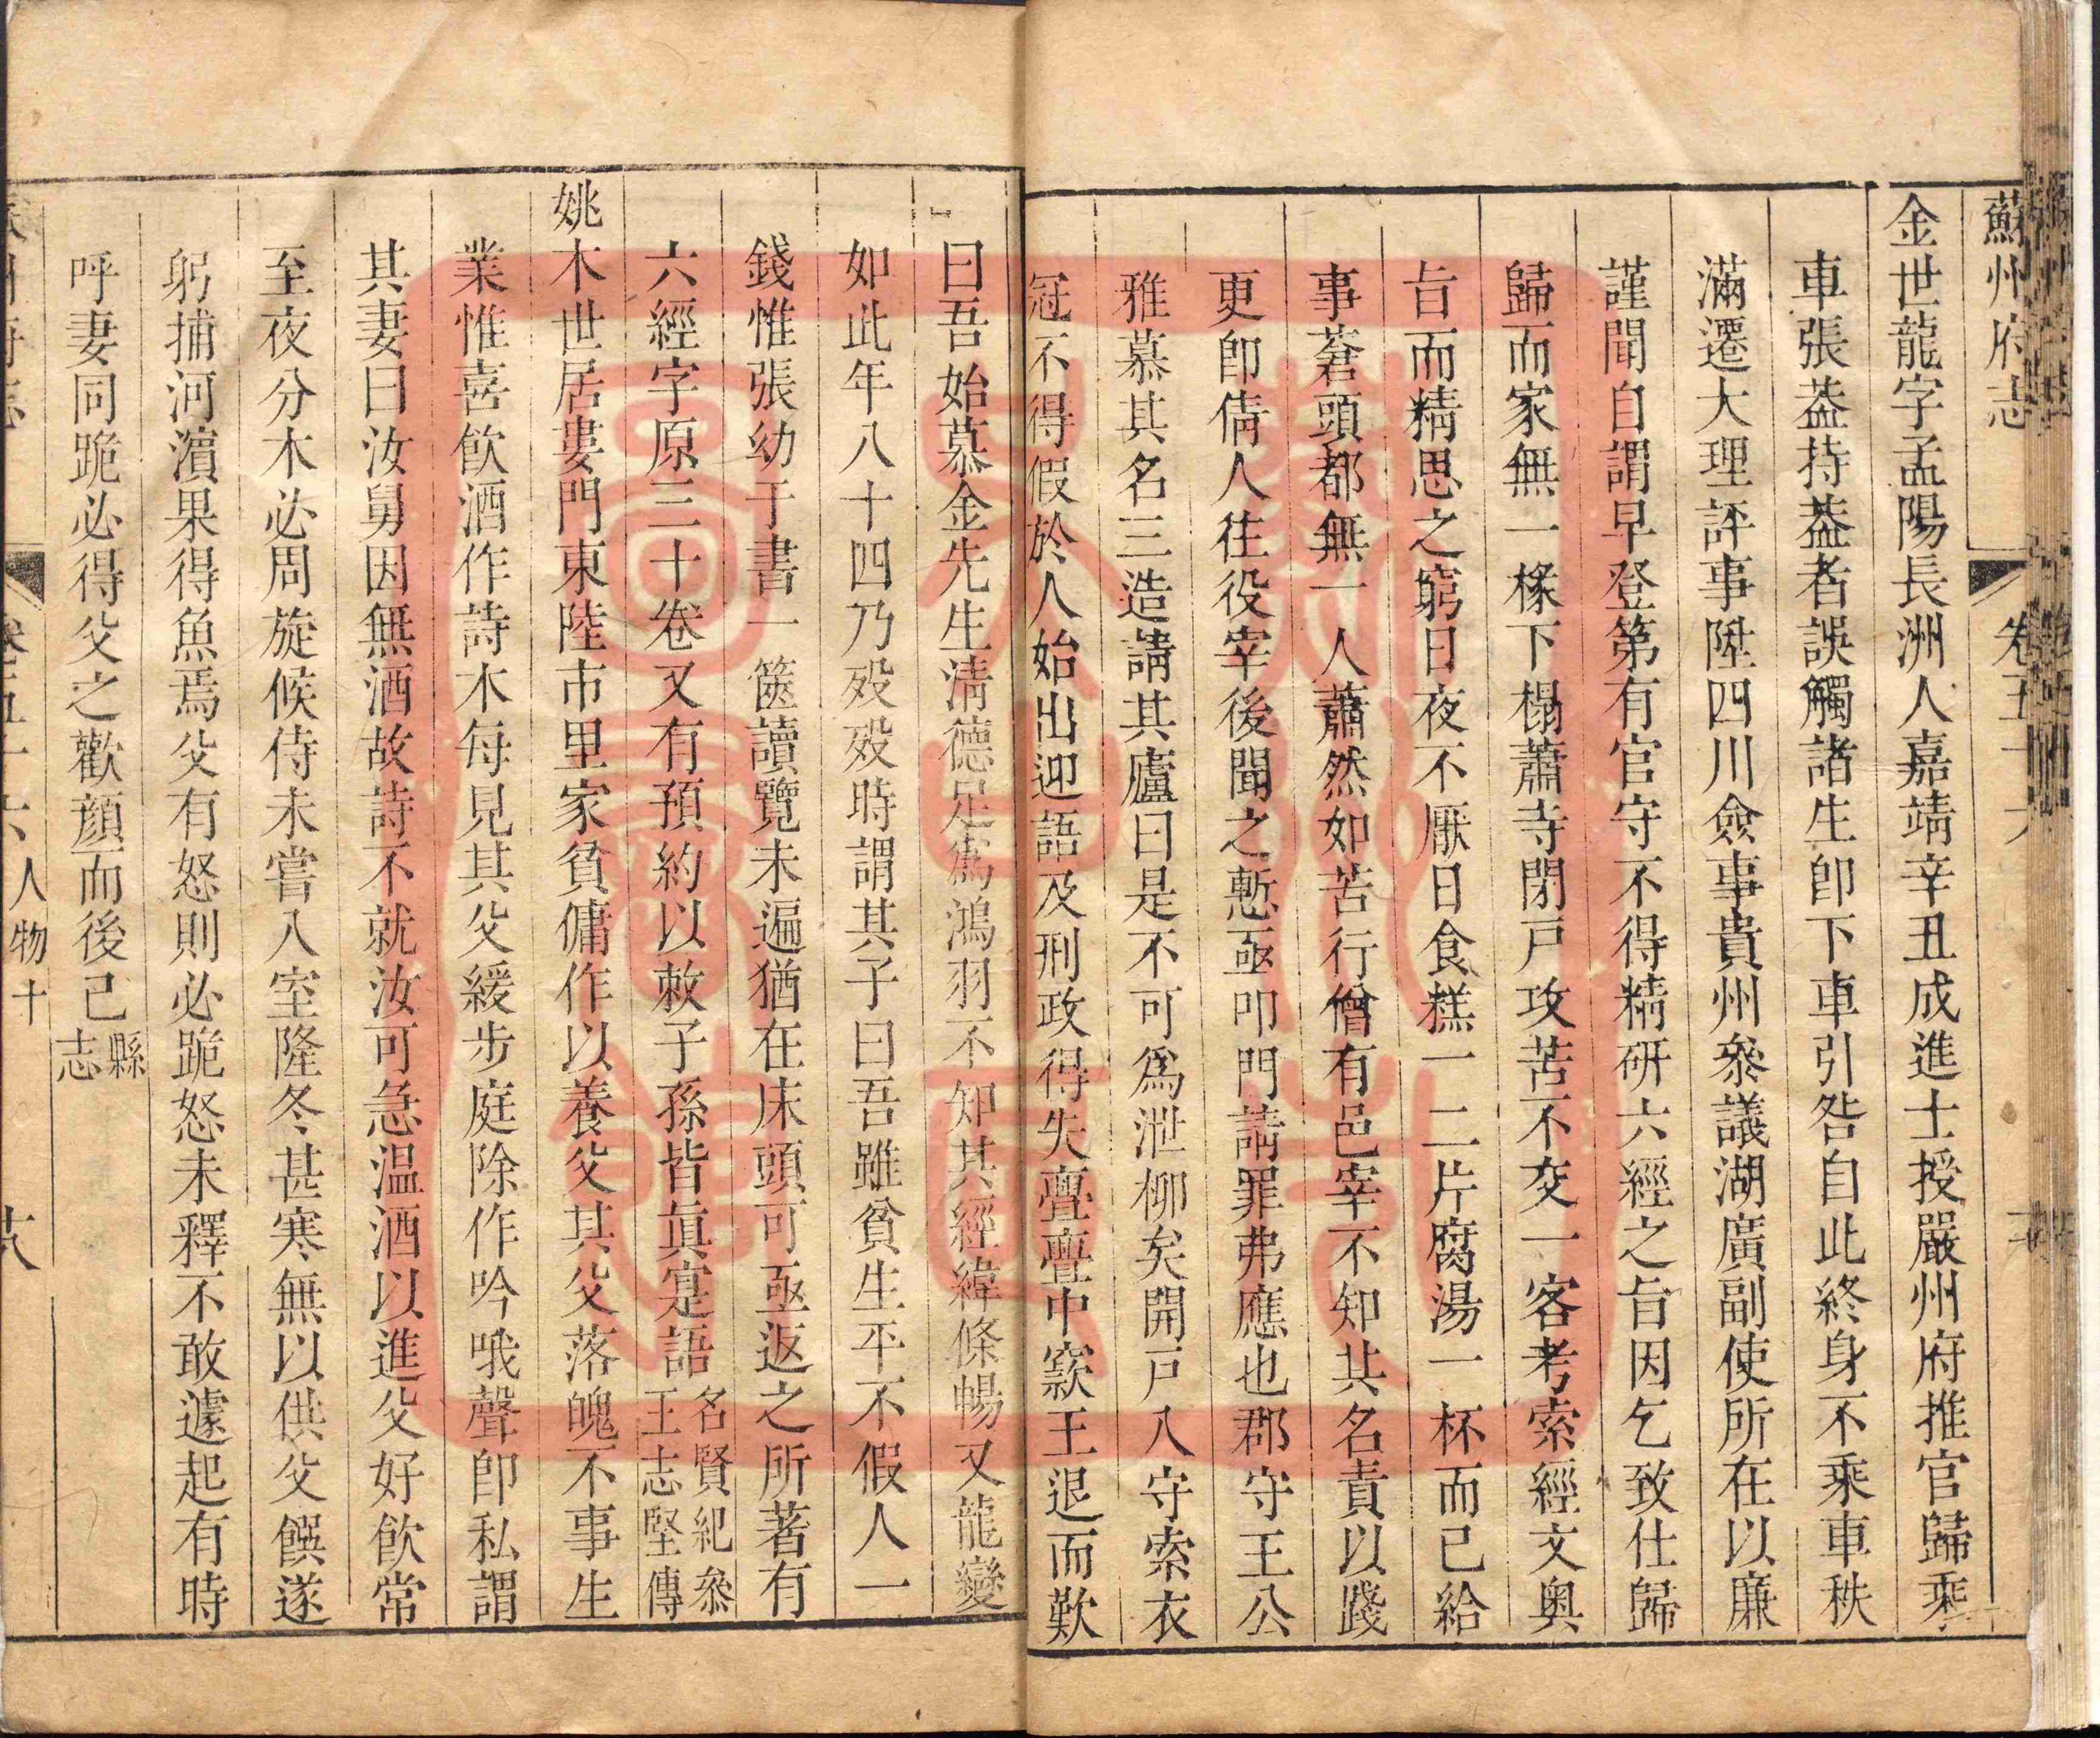 蘇州府志 卷五十六
金世龍字孟陽長洲人嘉靖辛丑成進士授嚴州府推官歸乘
車張葢持葢者誤觸諸生卽下車引咎自此終身不乘車秩
滿遷大理評事陞四川僉事貴州叅議湖廣副使所在以廉
謹聞自謂早登第有官守不得精研六經之旨因乞致仕歸
歸而家無一椽下榻蕭寺閉戸攻苦不交一客考索經文奥
旨而精思之窮日夜不厭日食糕一二片腐湯一杯而已給
事蒼頭都無一人蕭然如苦行僧有邑宰不知其名責以踐
更卽倩人往役宰後聞之慙亟叩門請罪弗應也郡守王公
雅慕其名三造請其廬曰是不可爲泄柳矣開戸入守索衣
冠不得假於人始出迎語及刑政得失亹亹中窾王退而歎
曰吾始慕金先生淸德足爲鴻羽不知其經緯條暢又龍變
如此年八十四乃殁殁時謂其子曰吾雖貧生平不假人一
錢惟張幼于書一篋讀覽未遍猶在床頭可亟返之所著有
六經字原三十卷又有預約以敕子孫皆眞寔語名賢紀叅王志堅傳
姚木世居婁門東陸市里家貧傭作以養父其父落魄不事生
業惟喜飲酒作詩木每見其父緩步庭除作吟哦聲卽私謂
其妻曰汝舅因無酒故詩不就汝可急温酒以進父好飲常
至夜分木必周旋候侍未嘗入室隆冬甚寒無以供父饌遂
躬捕河濵果得魚焉父有怒則必跪怒未釋不敢遽起有時
呼妻同跪必得父之歡顔而後已縣志
卷五十六 人物十